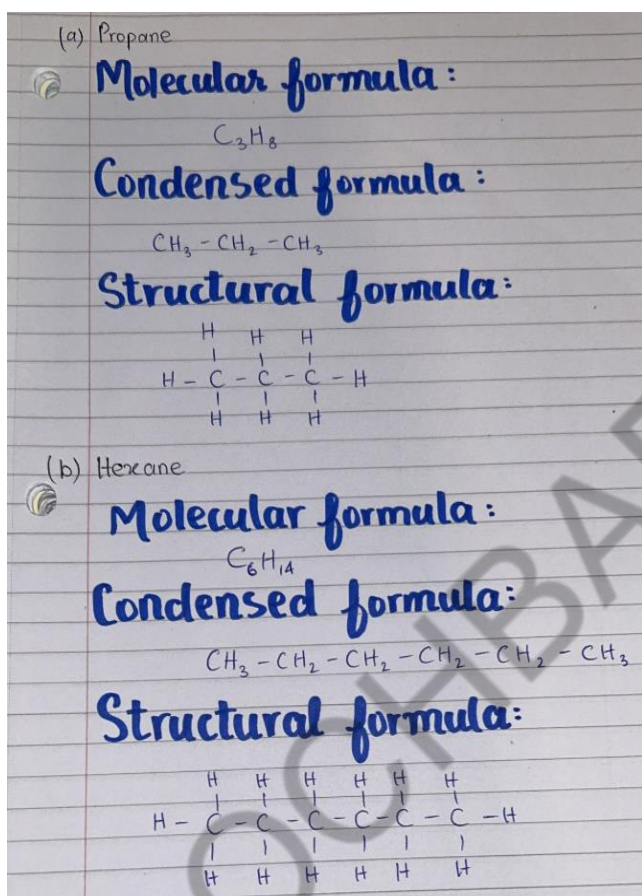 (a) Propane
Molecular formula:
C₃H₈
Condensed formula:
CH₃ - CH₂ - CH₃
Structural formula:
H H H
| | |
H - C - C - C - H
| | |
H H H
(b) Hexane
Molecular formula:
C₆H₁₄
Condensed formula:
CH₃ - CH₂ - CH₂ - CH₂ - CH₂ - CH₃
Structural formula:
H H H H H H
| | | | | |
H - C - C - C - C - C - C - H
| | | | | |
H H H H H H